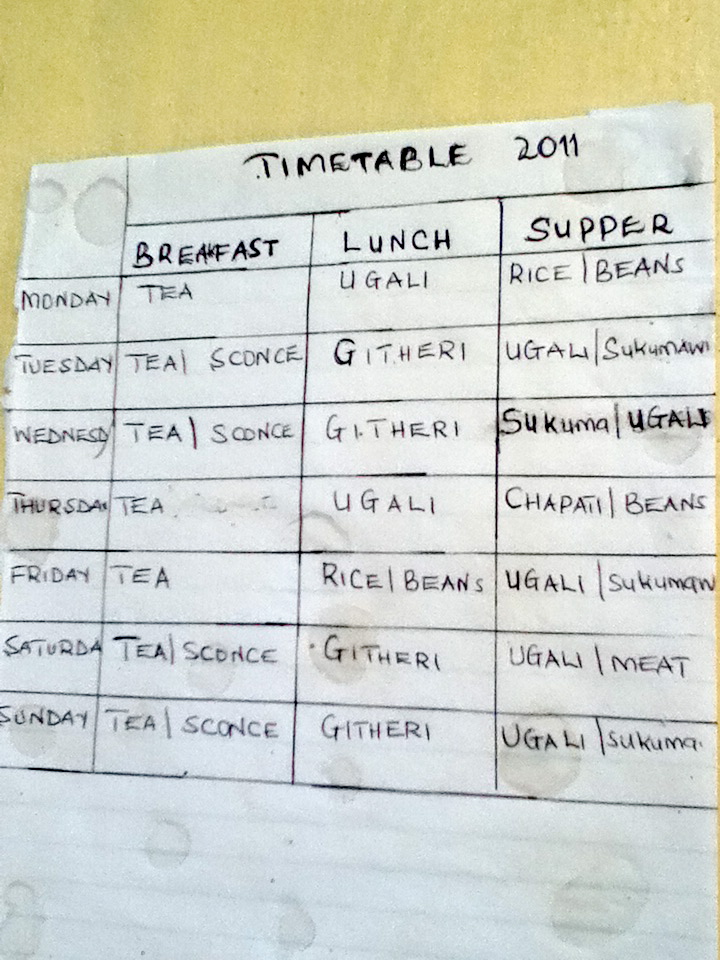 TIMETABLE 2011
BREAKFAST LUNCH SUPPER
MONDAY TEA UGALI RICE | BEANS
TUESDAY TEA | SCONCE GITHERI UGALI | SukumaWi
WEDNESD TEA | SCONCE GITHERI Sukuma | UGALI
THURSDAY TEA UGALI CHAPATI | BEANS
FRIDAY TEA RICE | BEANS UGALI | Sukumaw
SATURDA TEA | SCONCE GITHERI UGALI | MEAT
SUNDAY TEA | SCONCE GITHERI UGALI | Sukuma.